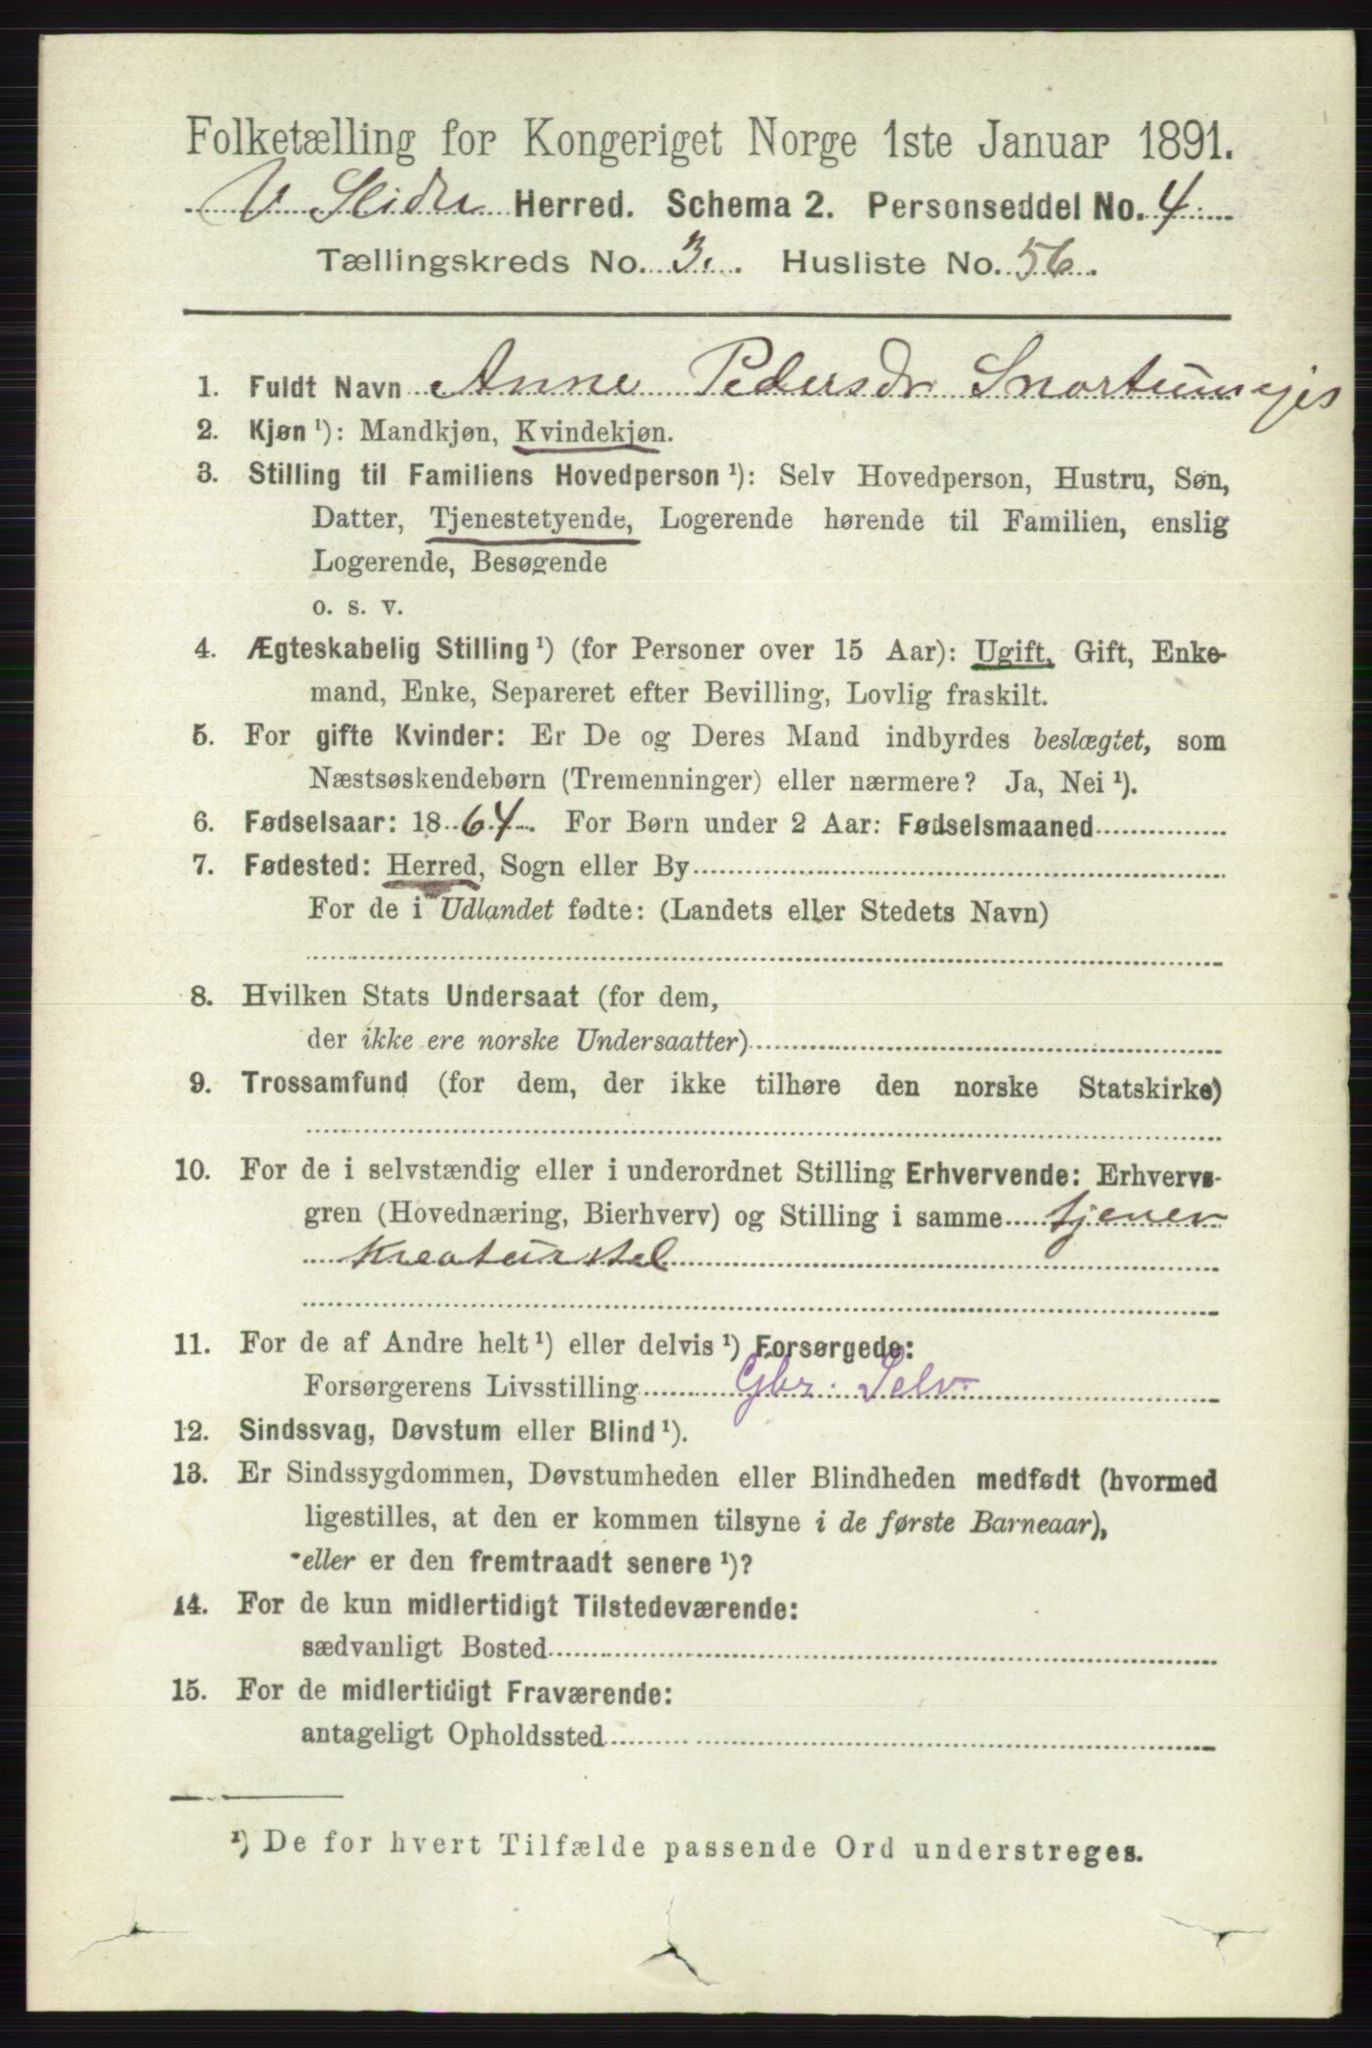 Folketælling for Kongeriget Norge 1ste Januar 1891.
V Slidre Herred. Schema 2. Personseddel No. 4
Tællingskreds No. 3. Husliste No. 56.
1. Fuldt Navn Anne Pedersdr Snortums
2. Kjøn ¹): Mandkjøn, Kvindekjøn.
3. Stilling til Familiens Hovedperson ¹): Selv Hovedperson, Hustru, Søn,
Datter, Tjenestetyende, Logerende hørende til Familien, enslig
Logerende, Besøgende
o. s. v.
4. Ægteskabelig Stilling ¹) (for Personer over 15 Aar): Ugift, Gift, Enke-
mand, Enke, Separeret efter Bevilling, Lovlig fraskilt.
5. For gifte Kvinder: Er De og Deres Mand indbyrdes beslægtet, som
Næstsøskendebørn (Tremenninger) eller nærmere? Ja, Nei ¹).
6. Fødselsaar: 1864. For Børn under 2 Aar: Fødselsmaaned
7. Fødested: Herred, Sogn eller By
For de i Udlandet fødte: (Landets eller Stedets Navn)
8. Hvilken Stats Undersaat (for dem,
der ikke ere norske Undersaatter)
9. Trossamfund (for dem, der ikke tilhøre den norske Statskirke)
10. For de i selvstændig eller i underordnet Stilling Erhvervende: Erhvervs-
gren (Hovednæring, Bierhverv) og Stilling i samme tjener
Kreaturstel
11. For de af Andre helt ¹) eller delvis ¹) Forsørgede:
Forsørgerens Livsstilling Gbr. Selv.
12. Sindssvag, Døvstum eller Blind ¹).
13. Er Sindssygdommen, Døvstumheden eller Blindheden medfødt (hvormed
ligestilles, at den er kommen tilsyne i de første Barneaar),
eller er den fremtraadt senere ¹)?
14. For de kun midlertidigt Tilstedeværende:
sædvanligt Bosted
15. For de midlertidigt Fraværende:
antageligt Opholdssted
¹) De for hvert Tilfælde passende Ord understreges.